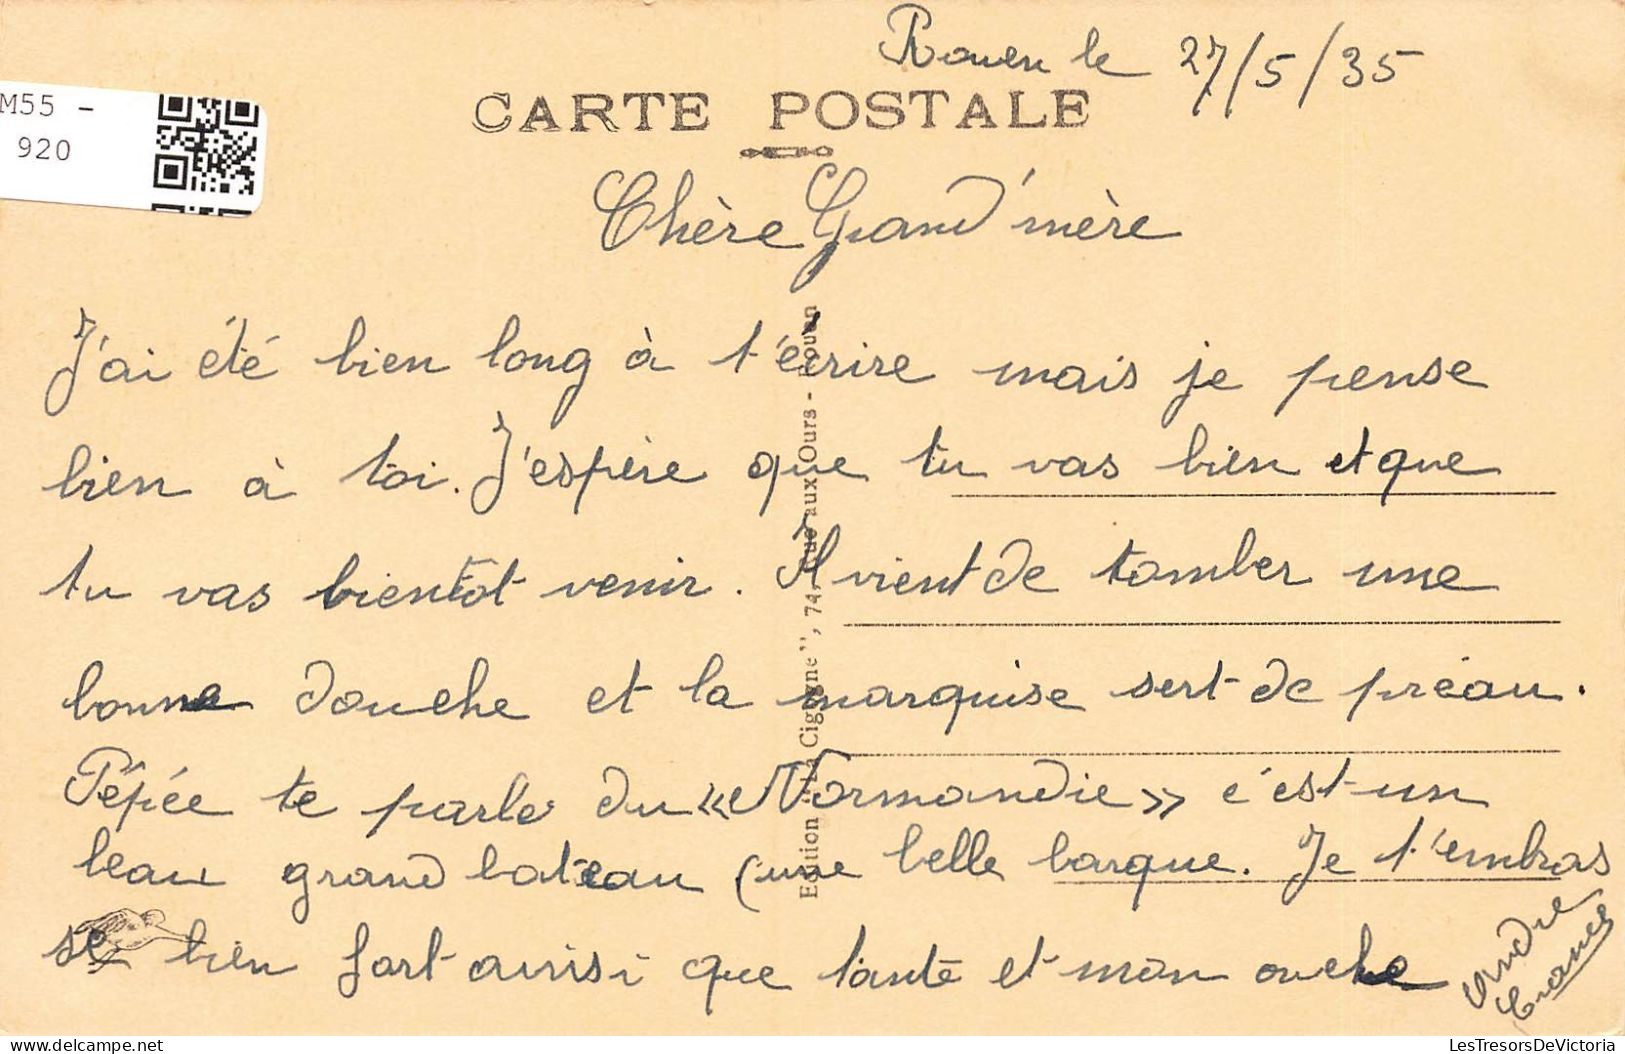 Rouen le 27/5/35
M55 -
920
CARTE POSTALE
Chère Grand'mère
J'ai été bien long à t'écrire mais je pense
bien à toi. J'espère que tu vas bien et que
tu vas bientôt venir. Il vient de tomber une
bonne douche et la marquise sert de préau.
Pépée te parle du «Normandie» c'est un
beau grand bateau (une belle barque. Je t'embras
se bien fort ainsi que tante et mon oncle
André
Edition "La Cigogne", 74, Rue aux Ours - Rouen
LesTresorsDeVictoria
LesTresorsDeVictoria.delcampe.net